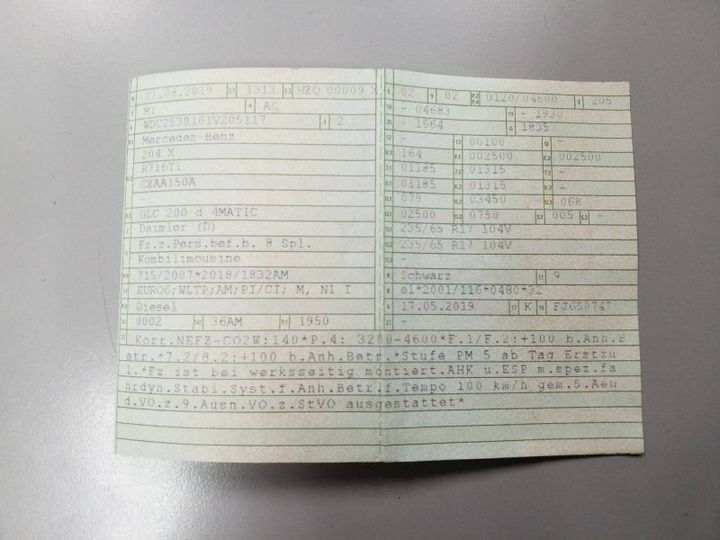 .08.2019 1313 HZQ 00009 X
M1 AC
WDC2539161V205117 2
Mercedes-Benz
204 X
R716T1
CZAA150A
-
GLC 200 d 4MATIC
Daimler (D)
Fz.z.Pers.bef.b. 8 Spl.
Kombilimousine
715/2007*2018/1832AM
EURO6;WLTP;AM;PI/CI; M, N1 I
Diesel
0002 36AM 1950
02 02 0120/04600 205
- 04683 - 1930
- 1664 1835
- 00100 -
164 002500 002500
01185 01315 -
01185 01315 -
079 03450 068
02500 0750 005 -
235/65 R17 104V
235/65 R17 104V
-
Schwarz 9
e1*2001/116*0480*32
17.05.2019 K
-
Korr.NEFZ-CO2W:140*P.4: 3200-4600*F.1/F.2:+100 b.Anh.B
etr.*7.2/8.2:+100 b.Anh.Betr.*Stufe PM 5 ab Tag Erstzu
l.*Fz ist bei werksseitig montiert.AHK u.ESP m.spez.fa
hrdyn.Stabi.Syst.f.Anh.Betr.f.Tempo 100 km/h gem.5.Aen
d.VO.z.9.Ausn.VO.z.StVO ausgestattet*